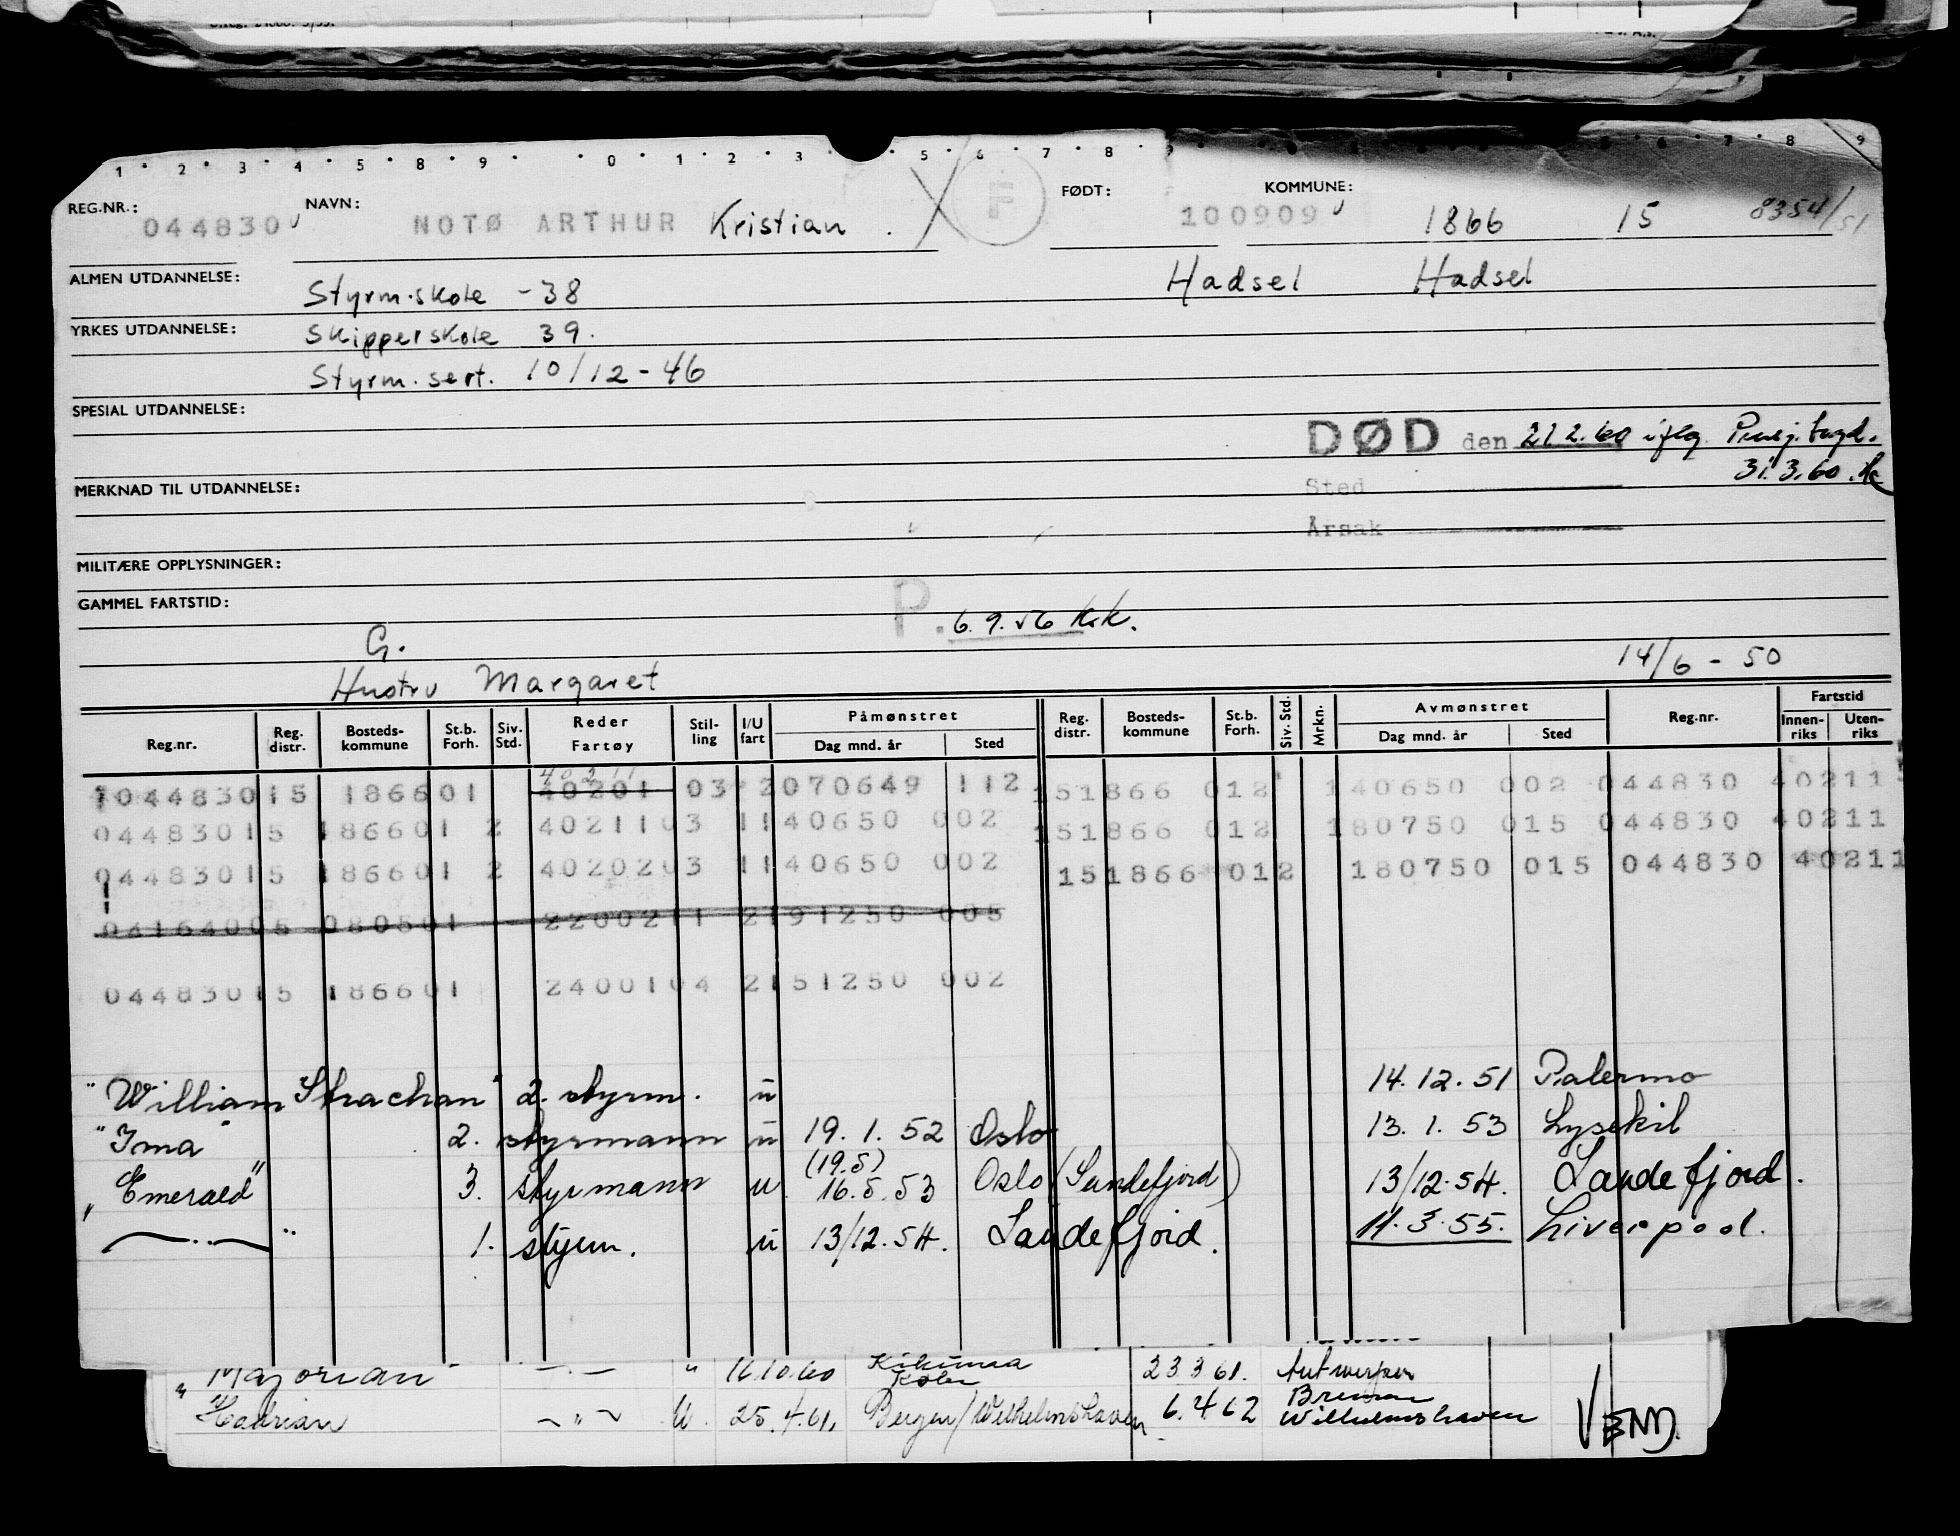 1 · 2 · 3 · 4 · 5 · 8 · 9 · · 0 · 1 · 2 · 3 · · 5 · 6 · 7 · 8 · 6 · 7 · 8 · 9
REG.NR.: NAVN: FØDT: KOMMUNE:
044830 NOTØ ARTHUR Kristian . F 100909 1866 15 8354/51
ALMEN UTDANNELSE: Styrm.skole - 38 Hadsel Hadsel
YRKES UTDANNELSE: Skipperskole 39.
Styrm. sert. 10/12-46
SPESIAL UTDANNELSE:
DØD den 21.2.60 iflg.
31.3.60.
MERKNAD TIL UTDANNELSE:
Sted
Årsak
MILITÆRE OPPLYSNINGER:
GAMMEL FARTSTID:
P. 6.9.56 Kr.K.
G.
Hustru Margaret 14/6-50
Reg.nr. Reg. distr. Bosteds-kommune St.b. Forh. Siv. Std. Reder Fartøy Stil-ling I/U fart Påmønstret Dag mnd. år Sted Reg. distr. Bosteds-kommune St.b. Forh. Siv. Std. Mrkn. Avmønstret Dag mnd. år Sted Reg.nr. Fartstid Innen-riks Uten-riks
40211
1044830 15 1866 01 40201 03 2 070649 112 151866 012 140650 002 044830 40211
044830 15 1866 01 2 40211 03 1 140650 002 151866 012 180750 015 044830 40211
044830 15 1866 01 2 40202 03 1 140650 002 151866 012 180750 015 044830 40211
041640 05 0805 01 22002 11 2 191250 005
044830 15 1866 01 24001 04 2 151250 002
"William Strachan" 2. styrm. u 14.12.51 Palermo
"Ima" 2. styrmann u 19.1.52 Oslo 13.1.53 Lysekil
(19.5)
"Emerald" 3. styrmann u 16.5.53 Oslo (Sandefjord) 13/12.54. Sandefjord.
—"— 1. styrm. u 13/12.54. Sandefjord. 11.3.55. Liverpool.
"Majorian" —"— " 11.10.60 23 3 61. Antwerpen
"Hadrian —"— U. 25.4.61. Bergen/Wilhelmshaven 6.4 62 Bremen Wilhelmshaven
VEND.